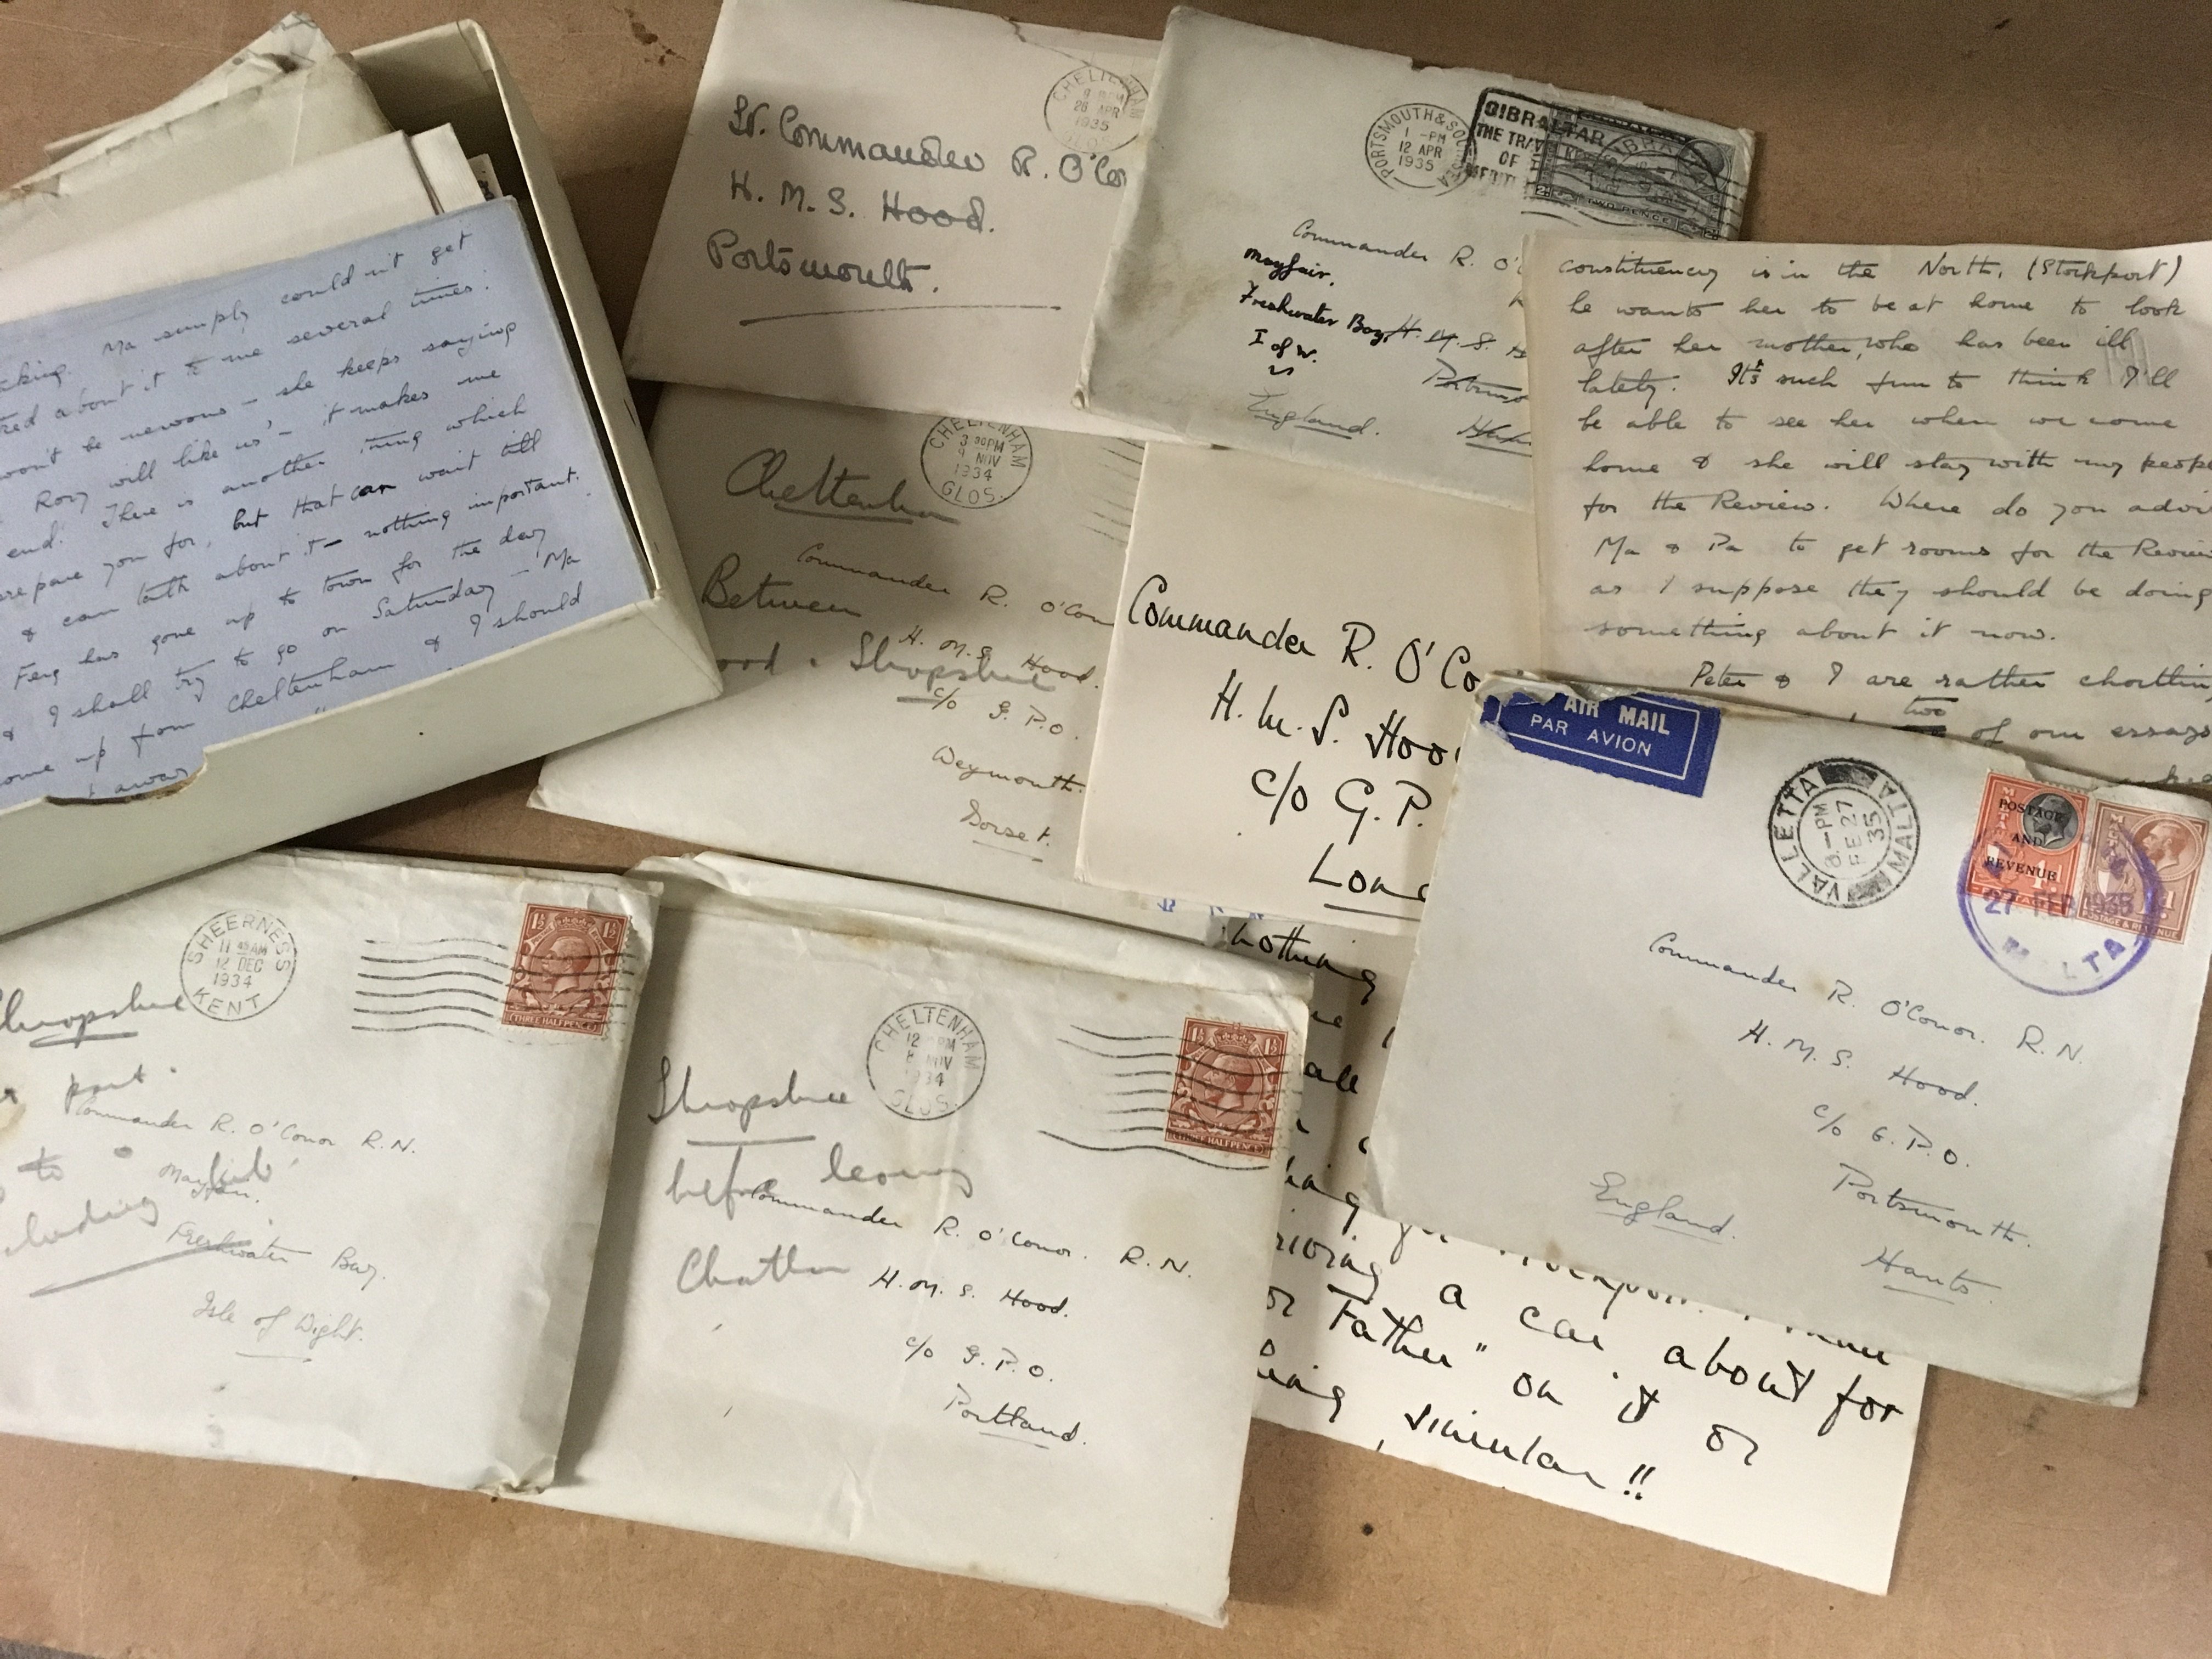 Ma simply couldn't get
about it to me several times.
won't be nervous - she keeps saying
Rory will like us' - it makes me
end. There is another thing which
prepare you for, but that can wait till
& can talk about it - nothing important.
Ferg has gone up to town for the day
& I shall try to go on Saturday - Ma
come up from Cheltenham & I should
away
CHELTENHAM
28 APR
1935
GLOS.
Lt. Commander R. O'Co
H. M. S. Hood.
Portsmouth.
PORTSMOUTH & SOUTHSEA
1 - PM
12 APR
1935
GIBRALTAR
THE TRAV
OF
TWO PENCE
Commander R. O'
Mayfair.
Freshwater Bay, H. M. S. H
I of W.
Portsmo
England.
constituency is in the North, (Stockport)
he wants her to be at home to look
after her mother, who has been ill
lately. It's such fun to think I'll
be able to see her when we come
home & she will stay with my peop
for the Review. Where do you advi
Ma & Pa to get rooms for the Review
as I suppose they should be doing
something about it now.
Peter & I are rather chortlin
two
of our essays
CHELTENHAM
3 30PM
9 NOV
1934
GLOS.
Cheltenham
Commander R. O'Con
Between
H. M. S. Hood.
ood & Shropshire
c/o G. P. O.
Weymouth.
Dorset.
Commander R. O'Co
H. M. S. Hoo
c/o G. P.
Lon
AIR MAIL
PAR AVION
VALLETTA MALTA
8 - PM
FE 27
35
POSTAGE
AND
REVENUE
27 FEB 1935
MALTA
Commander R. O'Conor. R. N.
H. M. S. Hood.
c/o G. P. O.
Portsmouth.
England.
Hants
SHEERNESS
11 45 AM
12 DEC
1934
KENT
THREE HALF PENCE
Shropshire
part.
Commander R. O'Conor R. N.
to
Mayfair.
Freshwater Bay.
Isle of Wight.
CHELTENHAM
8 NOV
1934
GLOS.
THREE HALF PENCE
Shropshire
before leaving
Commander R. O'Conor. R. N.
Chatham
H. M. S. Hood.
c/o G. P. O.
Portland.
nothing
all
driving a car about for
or Father" on it or
similar !!